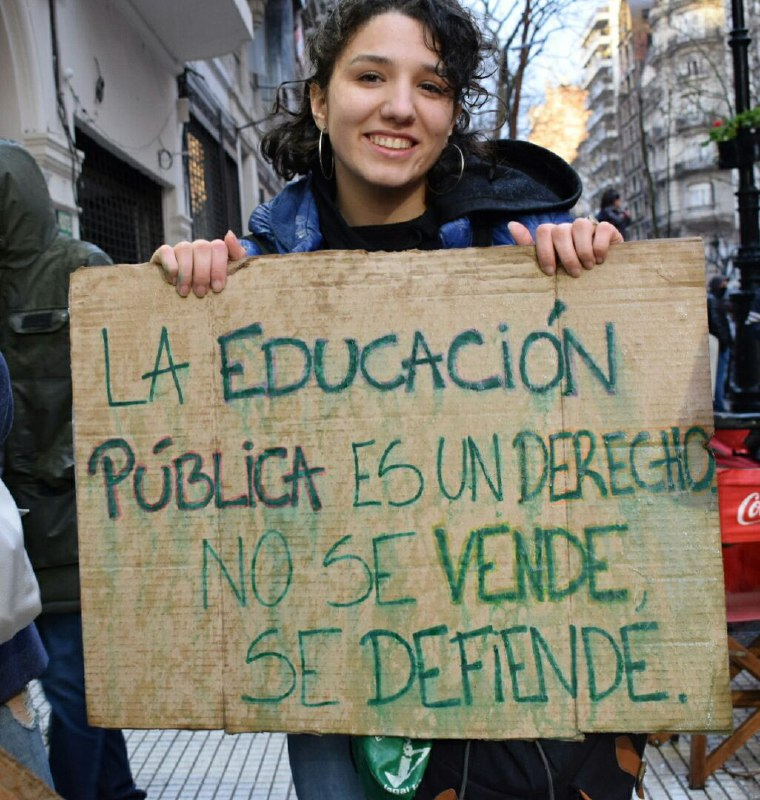 LA EDUCACIÓN
PÚBLICA ES UN DERECHO.
NO SE VENDE,
SE DEFIENDE.